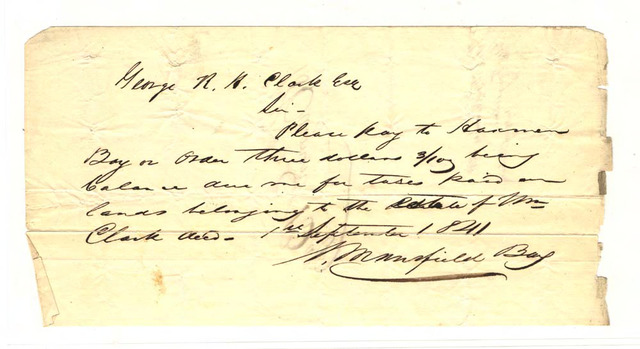 George R. H. Clark Esq
Sir -
Please pay to Harmon
Bay or order three dollars 3/100 being
balance due me for taxes paid on
lands belonging to the estate of Wm
Clark decd. 1st September 1841
S. Mansfield Bay